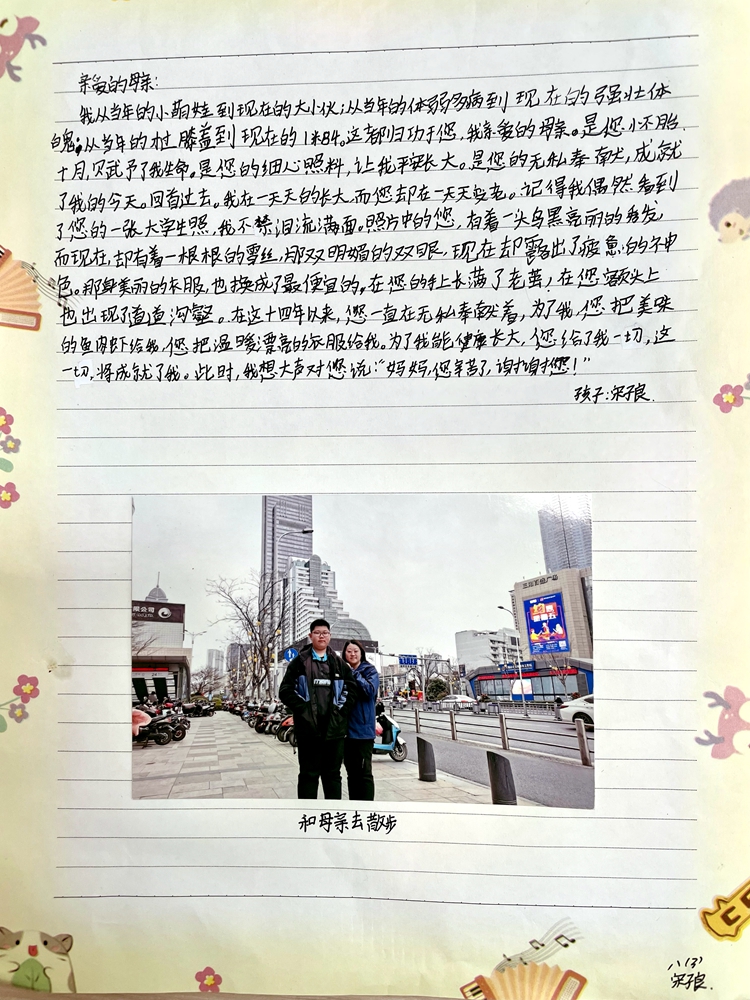 亲爱的母亲:
我从当年的小萌娃到现在的大小伙;从当年的体弱多病到现在的强壮体
魄;从当年的过膝盖到现在的1米84。这都归功于您,我亲爱的母亲。是您怀胎
十月,赋予了我生命。是您的细心照料,让我平安长大。是您的无私奉献,成就
了我的今天。回首过去。我在一天天的长大,而您却在一天天变老。记得我偶然看到
了您的一张大学生照,我不禁泪流满面。照片中的您,有着一头乌黑亮丽的秀发
而现在,却有着一根根的雪丝,那双明媚的双眼,现在却露出了疲惫的神
色。那身美丽的衣服,也换成了最便宜的,在您的手上长满了老茧,在您额头上
也出现了道道沟壑。在这十四年以来,您一直在无私奉献着,为了我,您把美味
的鱼肉虾给我,您把温暖漂亮的衣服给我。为了我能健康长大,您给了我一切,这
一切,将成就了我。此时,我想大声对您说:“妈妈,您辛苦了,谢谢您!”
孩子:宋子良.
限公司
和母亲去散步
八(3)
宋子良.